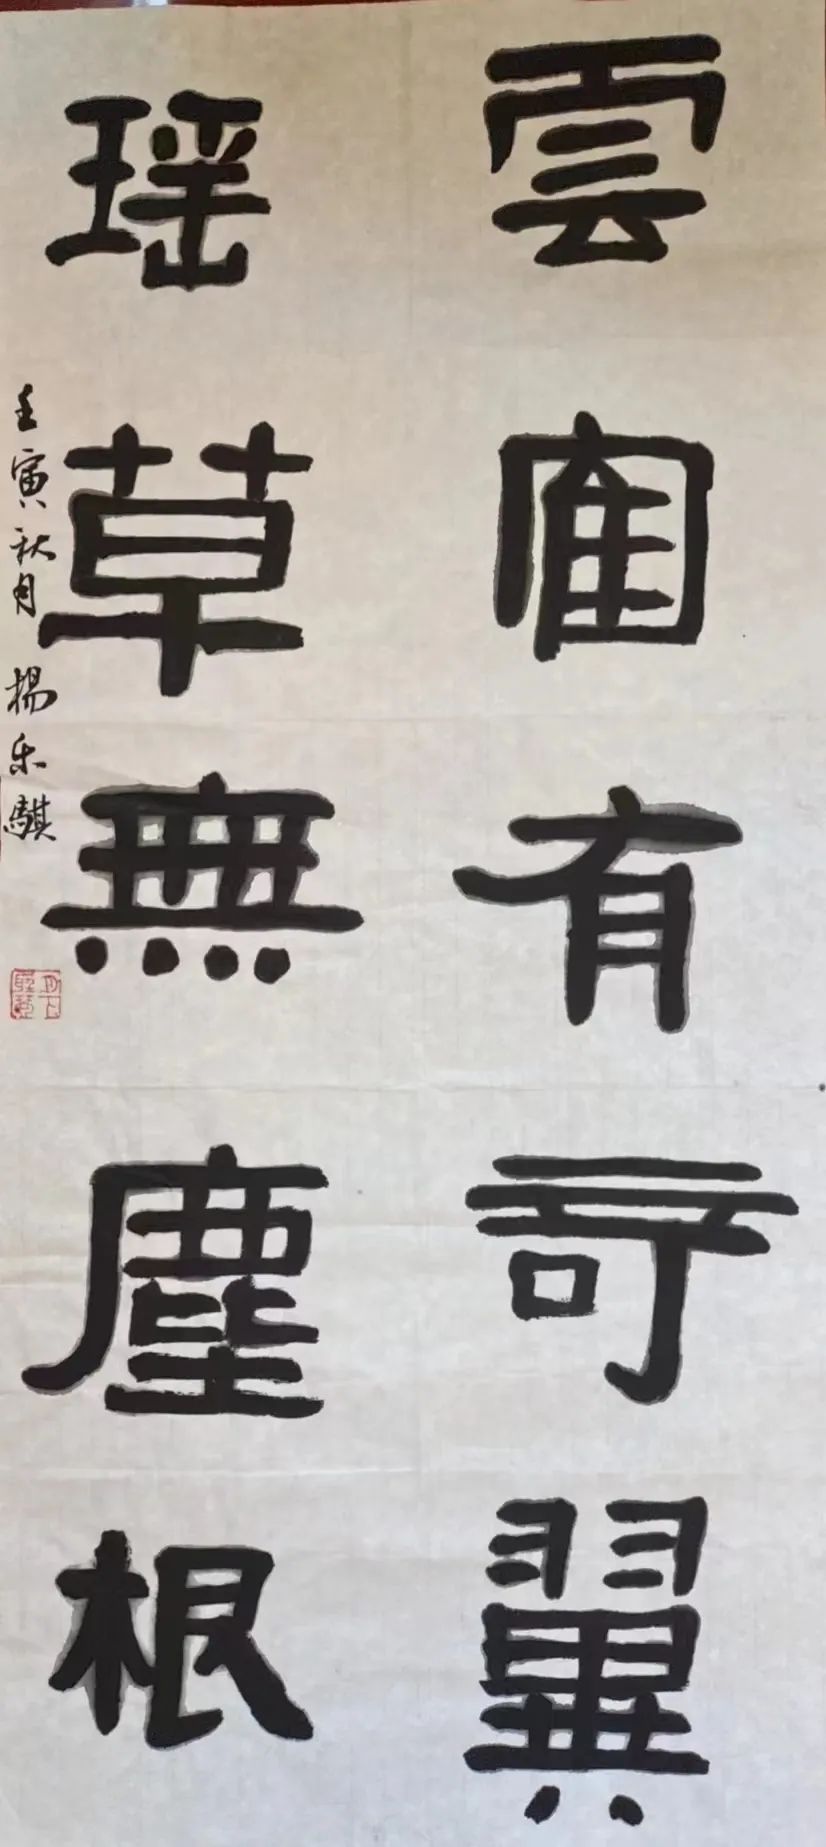 雲隺有奇翼
瑶草無塵根
壬寅秋月 楊乐騏